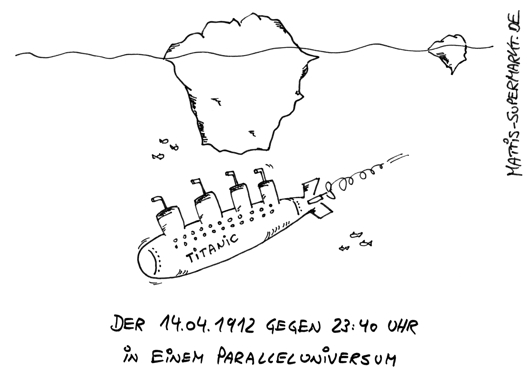 MATTIS-SUPERMARKT.DE
TITANIC
DER 14.04.1912 GEGEN 23:40 UHR
IN EINEM PARALLELUNIVERSUM